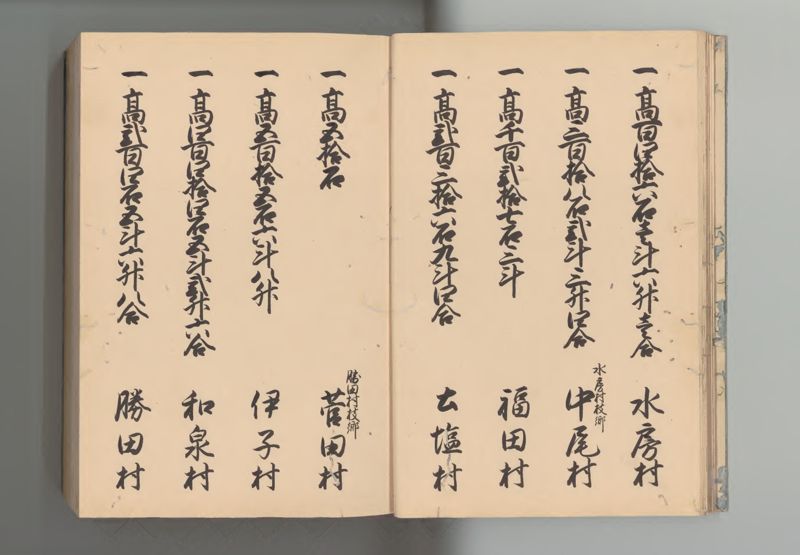 一高百四拾六石壱斗六升壱合 水房村
一高三百拾八石弐斗三升四合 水房村枝郷 中尾村
一高千百弐拾七石三斗 福田村
一高弐百三拾六石九斗四合 土塩村
一高五拾石 勝田村枝郷 菅田村
一高五百拾五石六斗八升 伊子村
一高四百四拾四石五斗弐升六合 和泉村
一高弐百四石五斗六升八合 勝田村